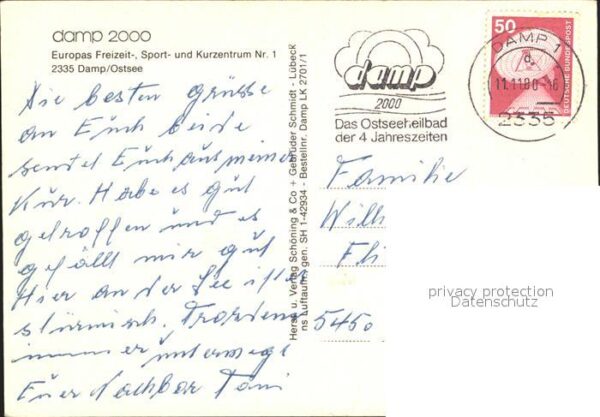 damp 2000
Europas Freizeit-, Sport- und Kurzentrum Nr. 1
2335 Damp/Ostsee
Die besten Grüsse
an Euch beide
sendet Euch aus meiner
Kur. Habe es gut
getroffen und es
gefällt mir gut
Hier an der See ist es
stürmisch. Trotzdem
immer unterwegs
Euer Nachbar Toni
Herst. u. Verlag Schöning & Co + Gebrüder Schmidt - Lübeck
ns Luftaufn. gen. SH 1-42934 - Bestellnr. Damp LK 2701/1
damp
2000
Das Ostseeheilbad
der 4 Jahreszeiten
DAMP 1
a
11.11.80-16
2335
50
DEUTSCHE BUNDESPOST
Familie
Wilh
Eli
5450
privacy protection
Datenschutz